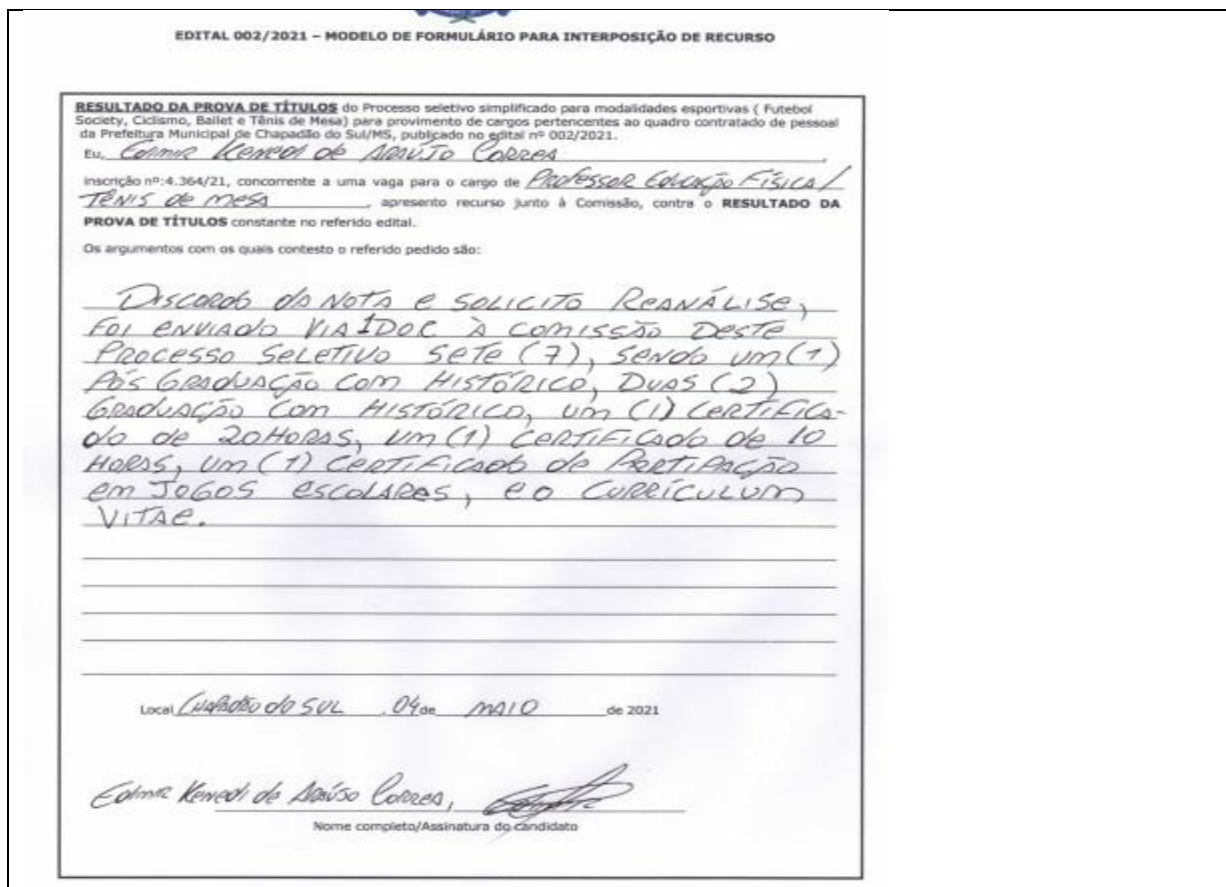 EDITAL 002/2021 – MODELO DE FORMULÁRIO PARA INTERPOSIÇÃO DE RECURSO
RESULTADO DA PROVA DE TÍTULOS do Processo seletivo simplificado para modalidades esportivas ( Futebol
Society, Ciclismo, Ballet e Tênis de Mesa) para provimento de cargos pertencentes ao quadro contratado de pessoal
da Prefeitura Municipal de Chapadão do Sul/MS, publicado no edital nº 002/2021.
Eu, Edimir Kenedi de Araújo Correa,
inscrição nº:4.364/21, concorrente a uma vaga para o cargo de Professor Educação Física/
Tênis de Mesa, apresento recurso junto à Comissão, contra o RESULTADO DA
PROVA DE TÍTULOS constante no referido edital.
Os argumentos com os quais contesto o referido pedido são:
Discordo da nota e solicito Reanálise,
foi enviado via 1DOC à comissão deste
Processo Seletivo sete (7), sendo um (1)
Pós Graduação com Histórico, Duas (2)
Graduação com Histórico, um (1) Certifica-
do de 20 Horas, um (1) Certificado de 10
Horas, um (1) Certificado de Partipação
em Jogos escolares, e o Curriculum
Vitae.
Local Chapadão do Sul , 04 de MAIO de 2021
Edimir Kenedi de Araújo Correa,
Nome completo/Assinatura do candidato